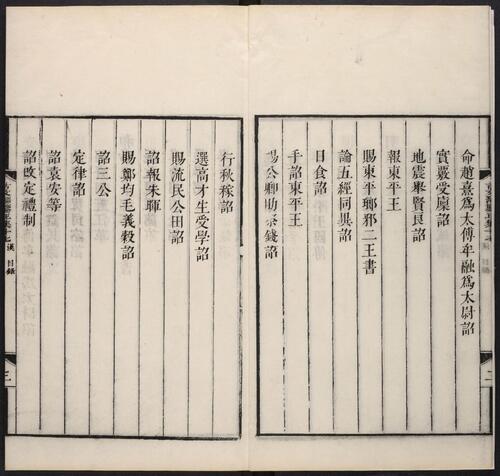 命趙憙爲太傅牟融爲太尉詔
實覈受廩詔
地震舉賢良詔
報東平王
賜東平琊邪二王書
論五經同異詔
日食詔
手詔東平王
賜公卿助祭錢詔
二
行秋稼詔
選高才生受學詔
賜流民公田詔
詔報朱暉
賜鄭均毛義穀詔
詔三公
定律詔
詔袁安等
詔改定禮制
目錄
三